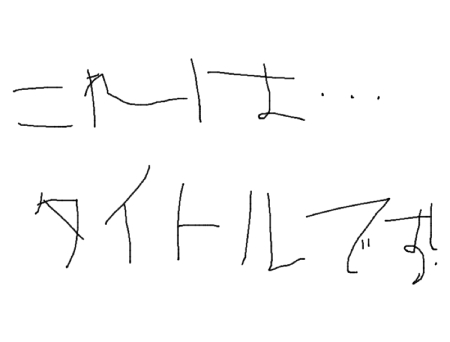 これは...
タイトルです!